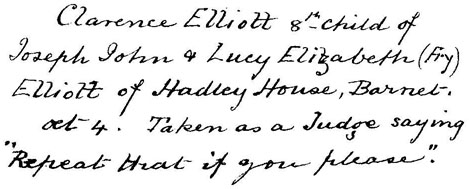 Clarence Elliott 8th child of
Joseph John & Lucy Elizabeth (Fry)
Elliott of Hadley House, Barnet.
aet 4. Taken as a Judge saying
"Repeat that if you please".